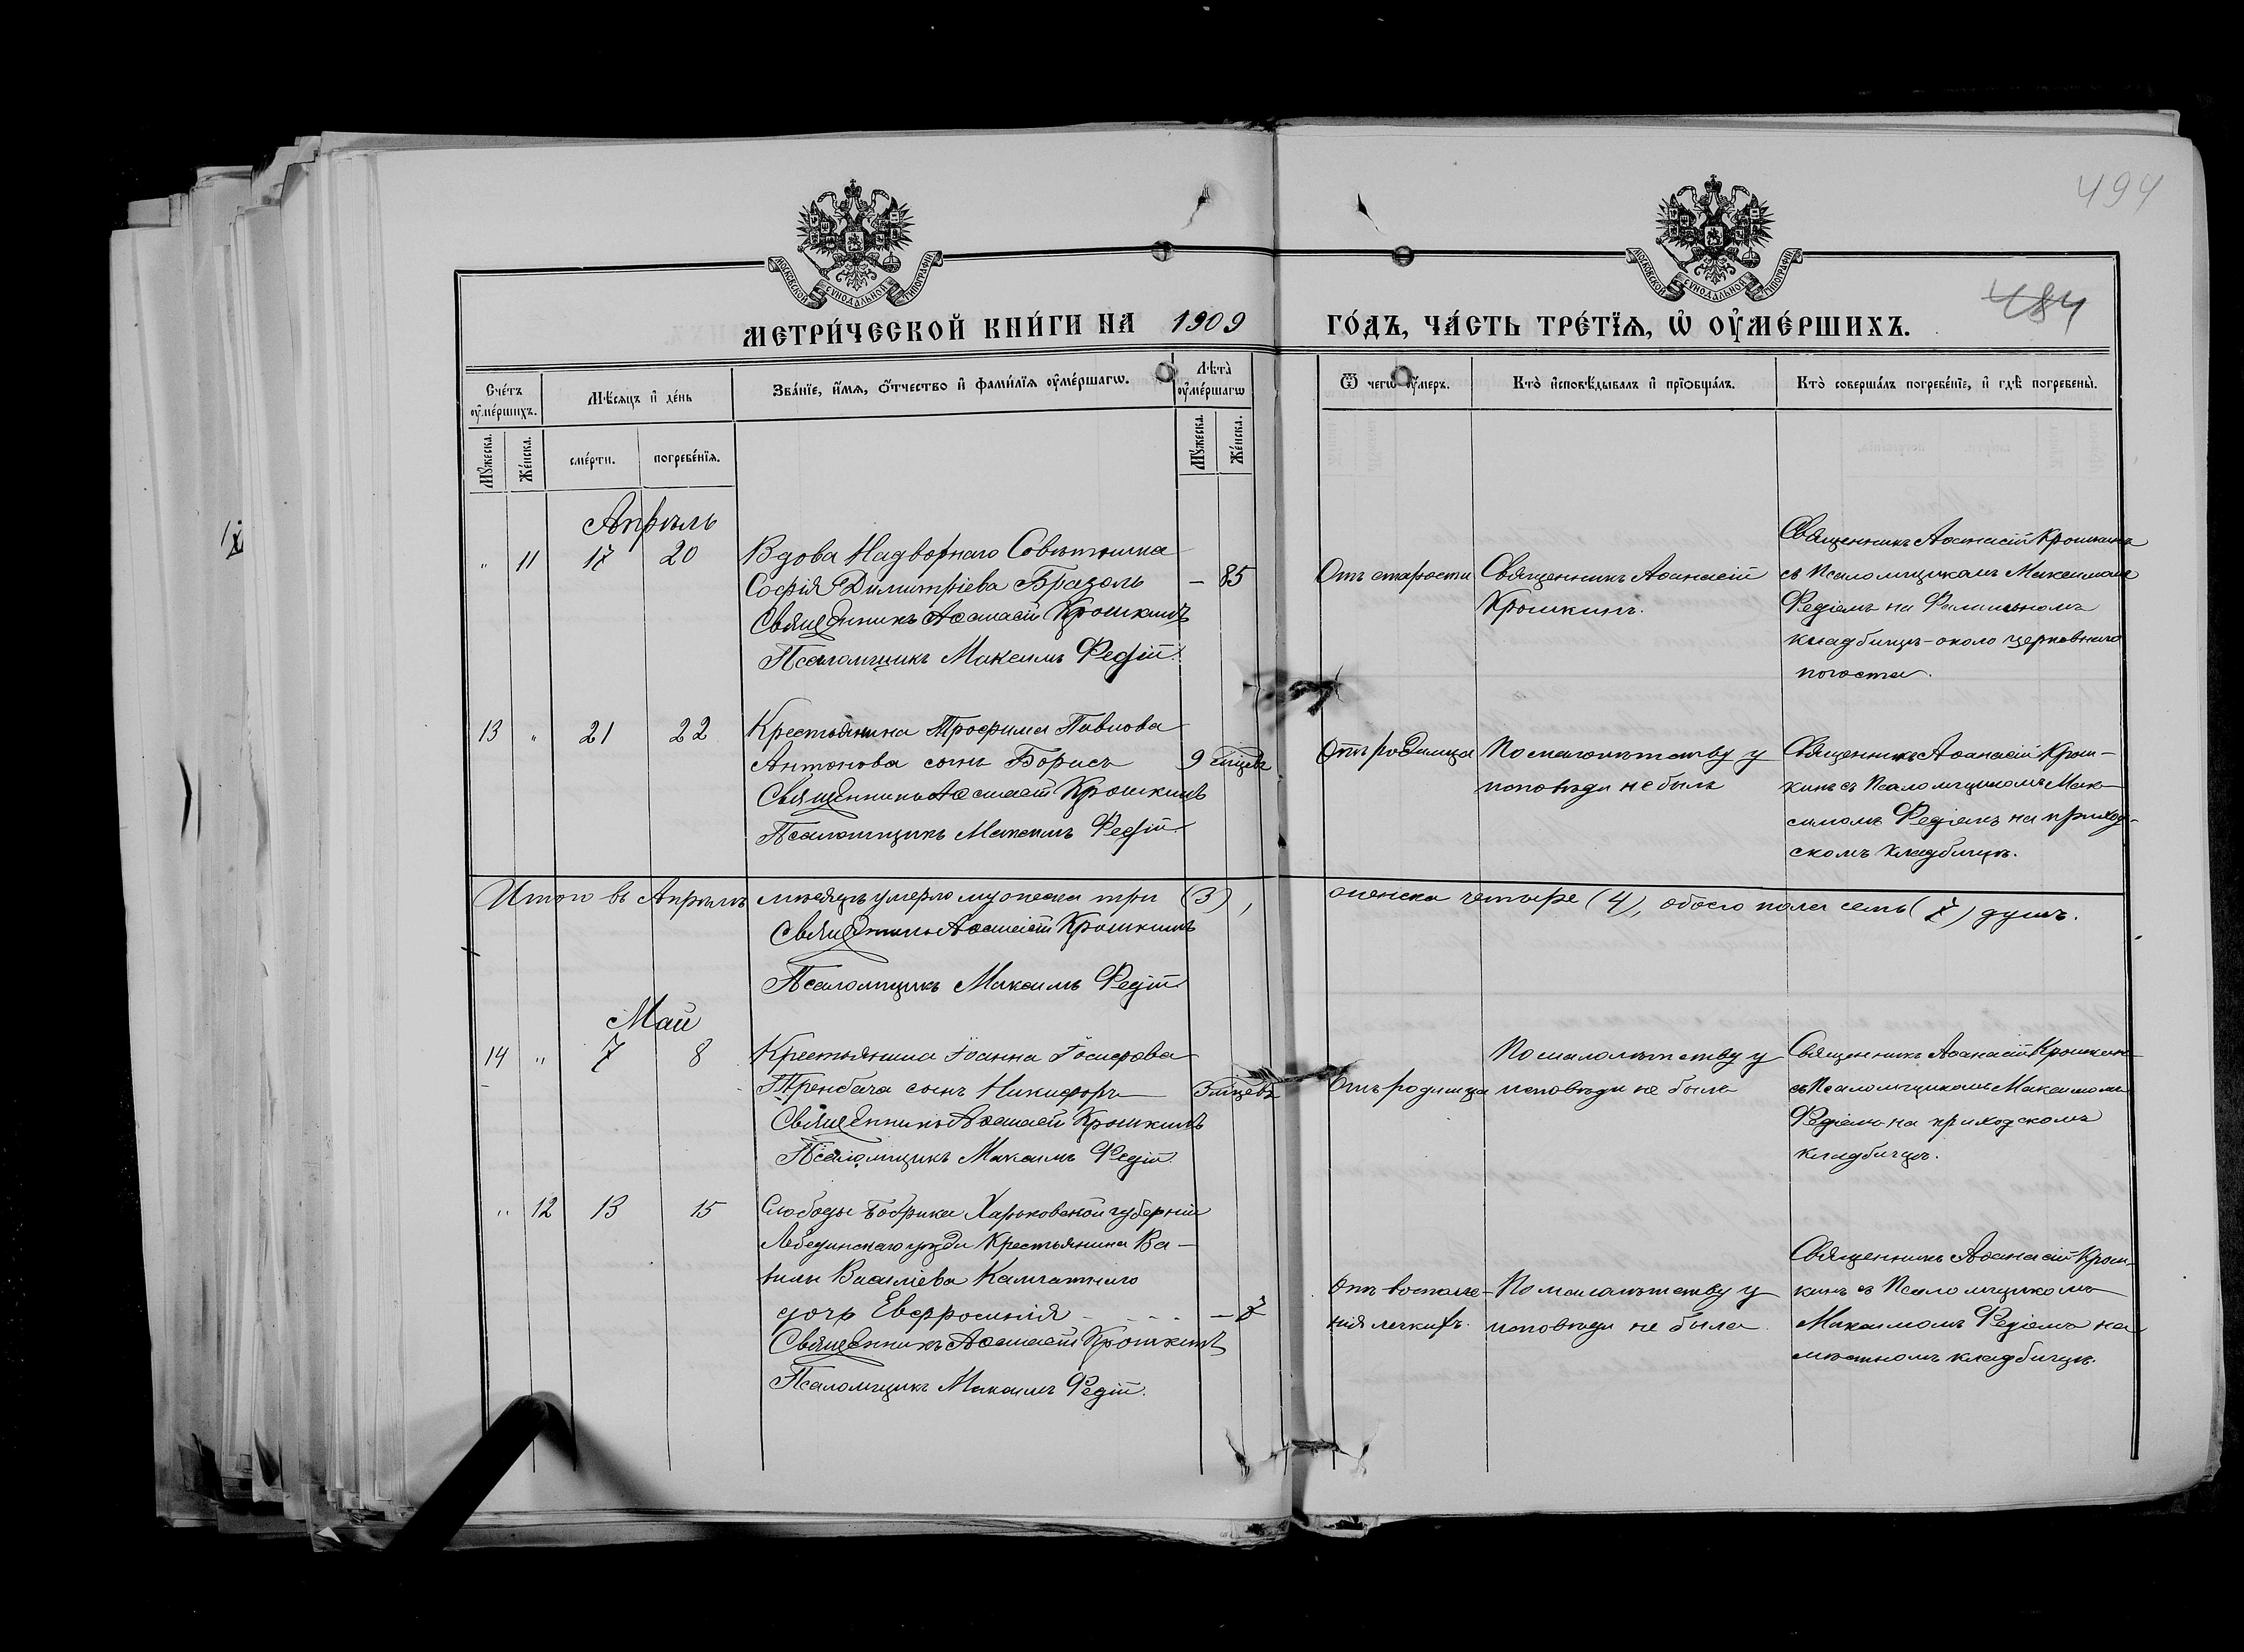 494
484
МОСКОВСКОЙ СѴНОДАЛЬНОЙ ТИПОГРАФІИ
МОСКОВСКОЙ СѴНОДАЛЬНОЙ ТИПОГРАФІИ
МЕТРИ́ЧЕСКОЙ КНИ́ГИ НА 1909 ГО́ДЪ, ЧА́СТЬ ТРЕ́ТЇѦ, Ѽ ОУ҆МЕ́РШИХЪ.
Сче́тъ оу҆ме́ршихъ.
Мѣ́сяцъ и҆ де́нь
Зва́нїе, и҆́мѧ, ѻ҆́тчество и҆ фами́лїѧ оу҆ме́ршагѡ.
Лѣта̀ оу҆ме́ршагѡ
Ѿ чегѡ̀ оу҆́меръ.
Кто̀ и҆сповѣ́дывалъ и҆ прїѡбща́лъ.
Кто̀ соверша́лъ погребе́нїе, и҆ гдѣ̀ погребены̀.
Мꙋ́жеска.
Же́нска.
сме́рти.
погребе́нїѧ.
Мꙋ́жеска.
Же́нска.
Апрѣль
" 11 17 20
Вдова Надворнаго Совѣтника
Софія Димитріева Бразоль
— 85
Священникъ Аѳанасій Крошкинъ
Псаломщикъ Максимъ Федій.
Отъ старости
Священникъ Аѳанасій
Крошкинъ.
Священникъ Аѳанасій Крошкинъ
съ Псаломщикомъ Максимомъ
Федіемъ на Фамильномъ
кладбищѣ - около церковнаго
погоста.
13 " 21 22
Крестьянина Трофима Павлова
Антонова сынъ Борисъ
9 мѣсяцевъ
Священникъ Аѳанасій Крошкинъ
Псаломщикъ Максимъ Федій
Отъ родимца
По малолѣтству у
исповѣди не былъ
Священникъ Аѳанасій Крош-
кинъ съ Псаломщикомъ Мак-
симомъ Федіемъ на приход-
скомъ кладбищѣ.
Итого въ Апрѣлѣ мѣсяцѣ умерло мужеска три (3), женска четыре (4), обоего пола семь (7) душъ.
Священникъ Аѳанасій Крошкинъ
Псаломщикъ Максимъ Федій
Май
14 " 7 8
Крестьянина Іоанна Іосифова
Тренбача сынъ Никифоръ
Священникъ Аѳанасій Крошкинъ
Псаломщикъ Максимъ Федій.
Отъ родимца
По малолѣтству у
исповѣди не былъ
Священникъ Аѳанасій Крошкинъ
съ Псаломщикомъ Максимомъ
Федіемъ на приходскомъ
кладбищѣ.
" 12 13 15
Слободы Бобрика Харьковской губерніи
Лебединскаго уѣзда Крестьянина Ва-
вилы Василіева Камчатнаго
дочь Евфросинія
— 7
Священникъ Аѳанасій Крошкинъ
Псаломщикъ Максимъ Федій.
Отъ воспале-
нія легкихъ.
По малолѣтству у
исповѣди не была.
Священникъ Аѳанасій Крош-
кинъ съ Псаломщикомъ
Максимомъ Федіемъ на
мѣстномъ кладбищѣ.